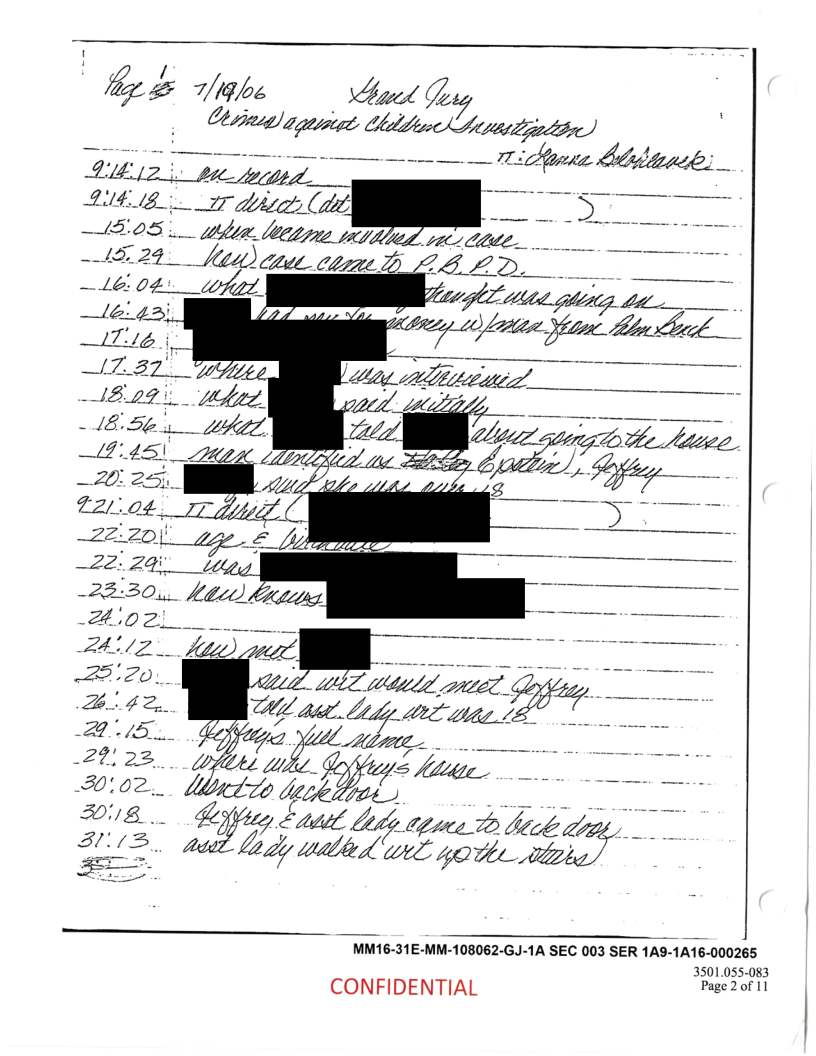 Page 1 7/19/06 Grand Jury
Crimes against Children Investigation
π: Lanna Belohlavek
9:14:12 on record
9:14:18 π direct (det )
15:05 when became involved in case
15:29 how case came to P.B.P.D.
16:04 what thought was going on
16:43 had for money w/man from Palm Beach
17:16
17:37 where was interviewed
18:09 what said initially
18:56 what told about going to the house
19:45 man identified as Epstein, Jeffrey
20:25 said she was over 18
9:21:04 π direct ( )
22:20 age &
22:29 was
23:30 how knows
24:02
24:12 how met
25:20 said wit would meet Jeffrey
26:42 told asst lady wit was 18
29:15 Jeffrey's full name
29:23 where was Jeffrey's house
30:02 Went to back door
30:18 Jeffrey & asst lady came to back door
31:13 asst lady walked wit up the stairs
MM16-31E-MM-108062-GJ-1A SEC 003 SER 1A9-1A16-000265
3501.055-083
CONFIDENTIAL
Page 2 of 11